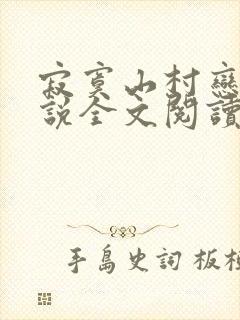 寂寞山村戀
說全文閱讀
手島史詞 板垣